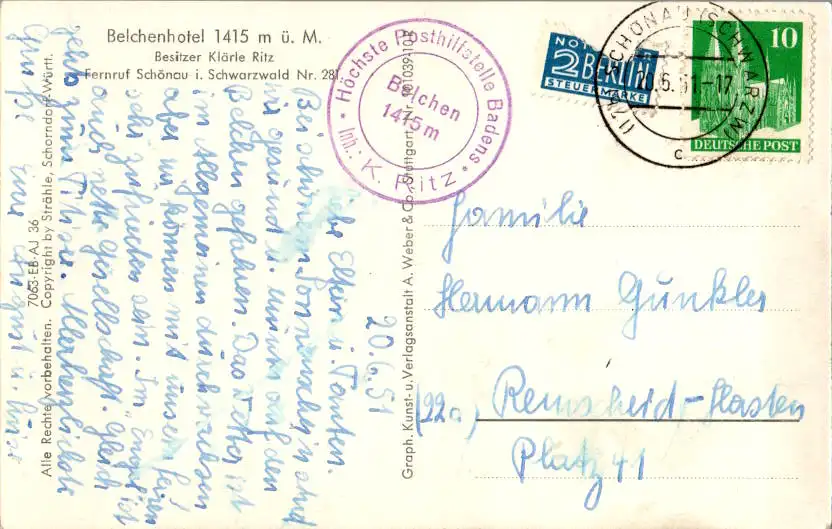 Belchenhotel 1415 m ü. M.
Besitzer Klärle Ritz
Fernruf Schönau i. Schwarzwald Nr. 281
Höchste Posthilfstelle Badens
Belchen
1415 m
Inh.: K. Ritz
NOT
2 BERLIN
STEUERMARKE
SCHÖNAU (SCHWARZW)
20.6.51-17
c
10
DEUTSCHE POST
20.6.51
Liebe Eltern u. Tanten.
Bei schönem Sonnenschein sind
wir gesund u. munter auf den
Belchen gefahren. Das Wetter ist
im Allgemeinen durchwachsen
aber wir können mit unsern Ferien
sehr zufrieden sein. In "Engel" ist
auch nette Gesellschaft. Gleich
gehts zum Titisee. Allerherzlichste
Grüße
Familie
Hermann Günkler
(22a) Remscheid-Hasten
Platz 41
Graph. Kunst- u. Verlagsanstalt A. Weber & Co. Stuttgart
7063-EB-AJ 36
Alle Rechte vorbehalten. Copyright by Strähle, Schorndorf-Württ.